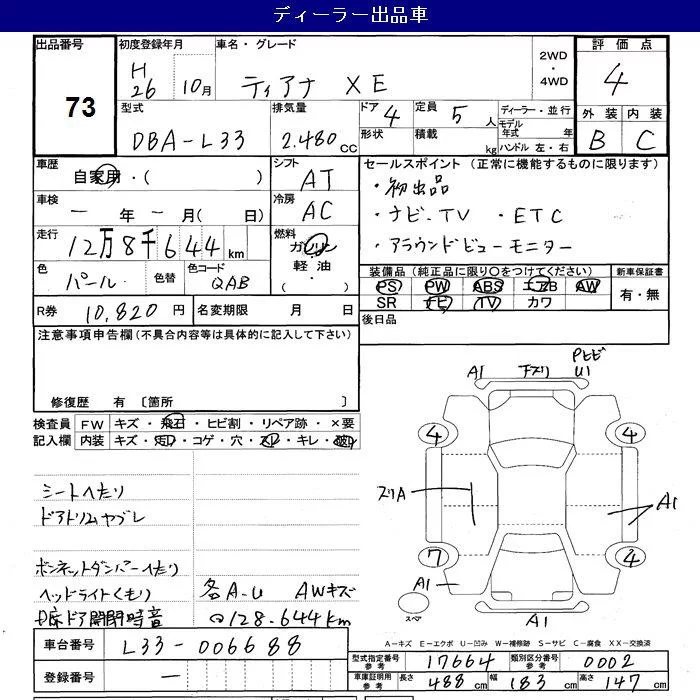 ディーラー出品車
出品番号 初度登録年月 車名・グレード 2WD・4WD 評価点
73 H26 10月 ティアナ XE 4
型式 排気量 ドア 4 定員 5人 ディーラー・並行 外装 内装
DBA-L33 2.480CC 形状 積載 kg モデル年式 年 ハンドル 左・右 B C
車歴 シフト セールスポイント(正常に機能するものに限ります)
自家用・( ) AT ・初出品
車検 冷房 ・ナビ.TV ・ETC
ー年ー月(日) AC ・アラウンドビューモニター
走行 燃料
12万8千644km ガソリン
色 色替 色コード 軽油・ 装備品(純正品に限り○をつけてください) 新車保証書
パール QAB PS PW ABS エアB AW 有・無
SR ナビ TV カワ
R券 10,820円 名変期限 月 日 後日品
注意事項申告欄(不具合内容等は具体的に記入して下さい)
修復歴 有〔箇所 〕
検査員 FW キズ・飛石・ヒビ割・リペア跡・×要
記入欄 内装 キズ・ コゲ・穴・スレ・キレ・
A1 PヒビU1
4 4
シートへたり
ズリA A1
ドアトリムヤブレ
7 4
ボンネットダンパーへたり
A1
ヘッドライトくもり 各A-U AWキズ
ドア開閉時音 128.644km
スペア A1
A-キズ E-エクボ U-凹み W-補修跡 S-サビ C-腐食 XX-交換済
車台番号 L33-006688
型式指定番号参考 17664 類別区分番号参考 0002
登録番号 ー
車庫証明用参考 長さ 488cm 幅 183cm 高さ 147cm